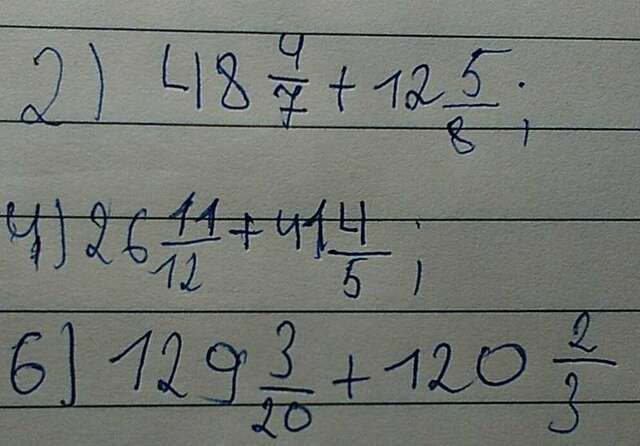 2) 48 4/7 + 12 5/8;
4) 26 11/12 + 41 4/5;
6) 129 3/20 + 120 2/3